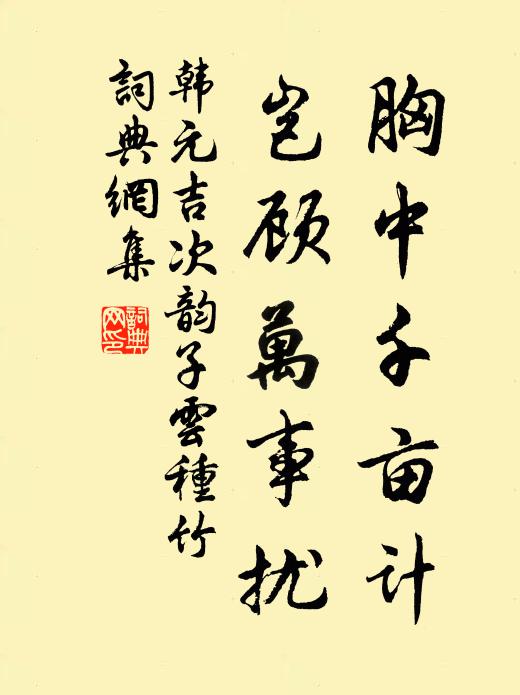 胸中千亩计
岂顾萬事扰
韩元吉次韵子雲種竹
詞典網集
詞典
网印